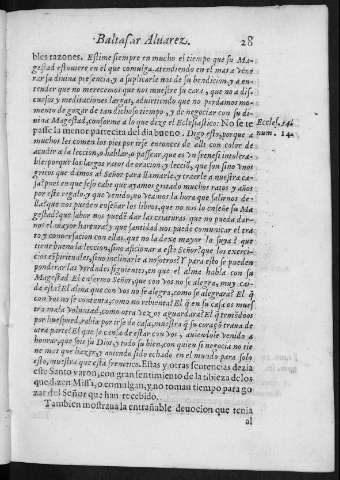 Baltasar Aluarez. 28
bles razones. Estime siempre en mucho el tiempo que su Ma-
gestad estuuiere en el que comulga. atendiendo en el mas a vene
rar su diuina presencia, y a suplicarle nos de su bendicion, y a en-
tender que no merecemos que nos muestre su cara, que no a dis-
cursos y meditaciones largas, aduirtiendo que no perdamos mo-
mento de gozar de tan dichoso tiempo, y de negociar con su di-
uina Magestad, conforme a lo que dize el Eclesiastico: No se te
passe la menor partecita del dia bueno. Digo esto, porque a
muchos les comen los pies por irse entonces de alli con color de
acudir a la leccion, o hablar, o passear, que es vn frenesi intolera-
ble: porque los largos ratos de oracion, y leccio, que son sino vnos
gritos que damos al Señor para llamarle, y traerle a nuestra ca-
sa? pues en que seso cabe que ayamos gritado muchos ratos y años
por este regalo, y que venido, no veamos la hora que salirnos de-
lla? que nos pueden enseñar los libros, que no nos lo enseñe su Ma
gestad? que sabor nos puede dar las criaturas que no pueda dar-
nos el mayor hartura? y que santidad nos puede comunicar el tra
to y conuersacion con ellas, que no la de mayor la suya? que
tiene bueno la leccion, sino aficionar a este Señor? que los exerci-
cios espirituales, sino inclinarle a nosotros? Y para esto se pueden
ponderar las verdades siguientes, en que el alma habla con su
Magestad. El enfermo Señor, que con vos no se alegra, muy cai-
do està? El alma que con vos no se alegra, como se alegrarà? El q̃
con vos no se contenta, como no rebienta? El q̃ en su casa os mues
tra mala voluntad, como otra vez os aguardarà? El q̃ teniẽdoos
por huesped, rabia por irse de casa, muestra q̃ su coraçõ trata de
otra parte? El que se cansa de estar con vos, auiendole venido a
honrar, que sois su Dios, y todo su bien, con quien si negocia no tie
ne mas que hazer, y auiendo sido echado en el mundo para solo
esto, muestra que està frenetico. Estas y otras sentencias dezia
este Santo varon, con gran sentimiento de la tibieza de los
que dizen Missa, o comulgan, y no toman tiempo para go
zar del Señor que han recebido.
Tambien mostraua la entrañable deuocion que tenia
al
Eccles. 14.
num. 14.